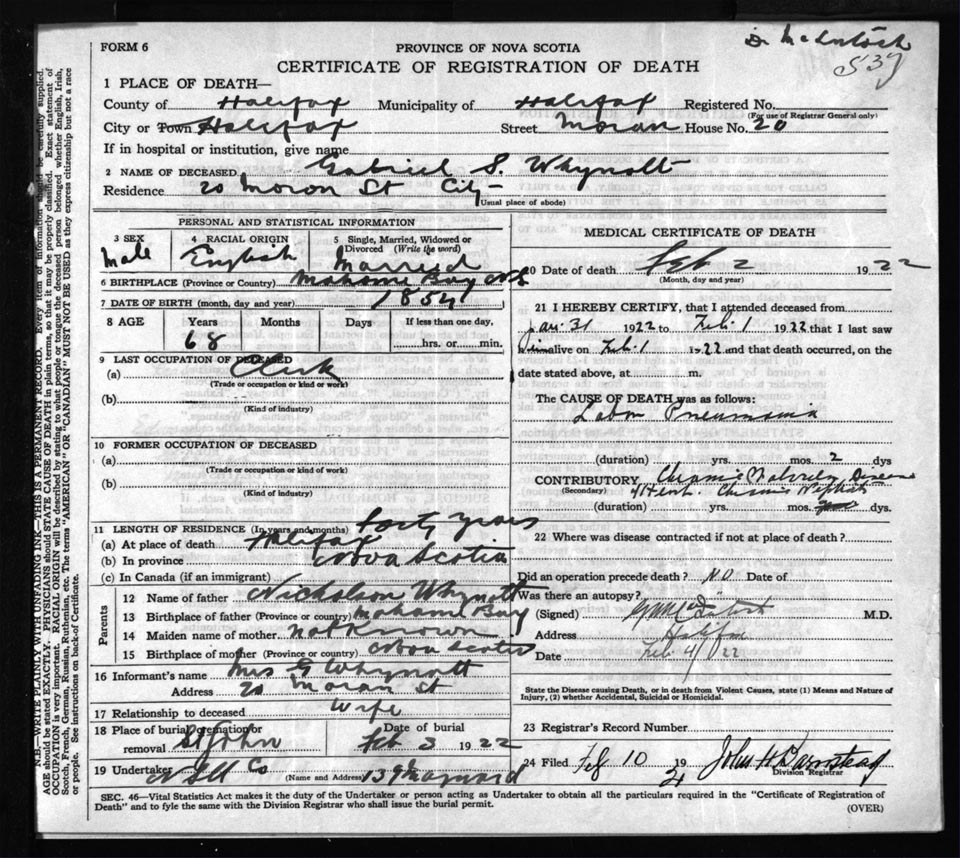 Dr McIntosh
539
FORM 6
PROVINCE OF NOVA SCOTIA
CERTIFICATE OF REGISTRATION OF DEATH
1 PLACE OF DEATH—
County of Halifax Municipality of Halifax Registered No.
(For use of Registrar General only)
City or Town Halifax Street Moran House No. 20
If in hospital or institution, give name
2 NAME OF DECEASED Gabriel S. Whynott
Residence 20 Moran St City
(Usual place of abode)
PERSONAL AND STATISTICAL INFORMATION
3 SEX 4 RACIAL ORIGIN 5 Single, Married, Widowed or
Divorced (Write the word)
Male English Married
6 BIRTHPLACE (Province or Country) Mahone Bay NS
7 DATE OF BIRTH (month, day and year) 1854
8 AGE Years Months Days If less than one day,
68 ......hrs. or......min.
9 LAST OCCUPATION OF DECEASED
(a) Clerk
(Trade or occupation or kind or work)
(b)
(Kind of industry)
10 FORMER OCCUPATION OF DECEASED
(a)
(Trade or occupation or kind or work)
(b)
(Kind of industry)
11 LENGTH OF RESIDENCE (In years and months) forty years
(a) At place of death Halifax
(b) In province Nova Scotia
(c) In Canada (if an immigrant)
Parents
12 Name of father Nicholson Whynott
13 Birthplace of father (Province or country) Mahone Bay
14 Maiden name of mother not Known
15 Birthplace of mother (Province or country) Nova Scotia
16 Informant's name Mrs G Whynott
Address 20 Moran St
17 Relationship to deceased Wife
18 Place of burial, cremation or Date of burial
removal St John Feb 3 1922
19 Undertaker Snow Co
(Name and Address) 139 Maynard
MEDICAL CERTIFICATE OF DEATH
20 Date of death Feb 2 1922
(Month, day and year)
21 I HEREBY CERTIFY, that I attended deceased from
Jan. 31 1922 to Feb. 1 1922 that I last saw
him alive on Feb. 1 1922 and that death occurred, on the
date stated above, at m.
The CAUSE OF DEATH was as follows:
Lobar Pneumonia
(duration) yrs. mos. 2 dys
CONTRIBUTORY Chronic Valvular Disease
(Secondary) Heart. Chronic Nephritis
(duration) yrs. mos. dys.
22 Where was disease contracted if not at place of death?
Did an operation precede death? NO Date of
Was there an autopsy?
(Signed) McIntosh M.D.
Address Halifax
Date Feb 4/22
State the Disease causing Death, or in death from Violent Causes, state (1) Means and Nature of
Injury, (2) whether Accidental, Suicidal or Homicidal.
23 Registrar's Record Number
24 Filed Feb 10 19 John H Barnstead
Division Registrar
SEC. 46—Vital Statistics Act makes it the duty of the Undertaker or person acting as Undertaker to obtain all the particulars required in the "Certificate of Registration of
Death" and to fyle the same with the Division Registrar who shall issue the burial permit.
(OVER)
N.B.—WRITE PLAINLY WITH UNFADING INK—THIS IS A PERMANENT RECORD. Every item of information should be carefully supplied.
AGE should be stated EXACTLY. PHYSICIANS should STATE CAUSE OF DEATH in plain terms, so that it may be properly classified. Exact statement of
OCCUPATION is very important. RACIAL ORIGIN will be described by stating to what people or tongue the deceased person belonged whether English, Irish,
Scotch, French, German, Russian, Ruthenian, etc. The terms "AMERICAN" OR "CANADIAN" MUST NOT BE USED as they express citizenship but not a race
or people. See instructions on back of Certificate.